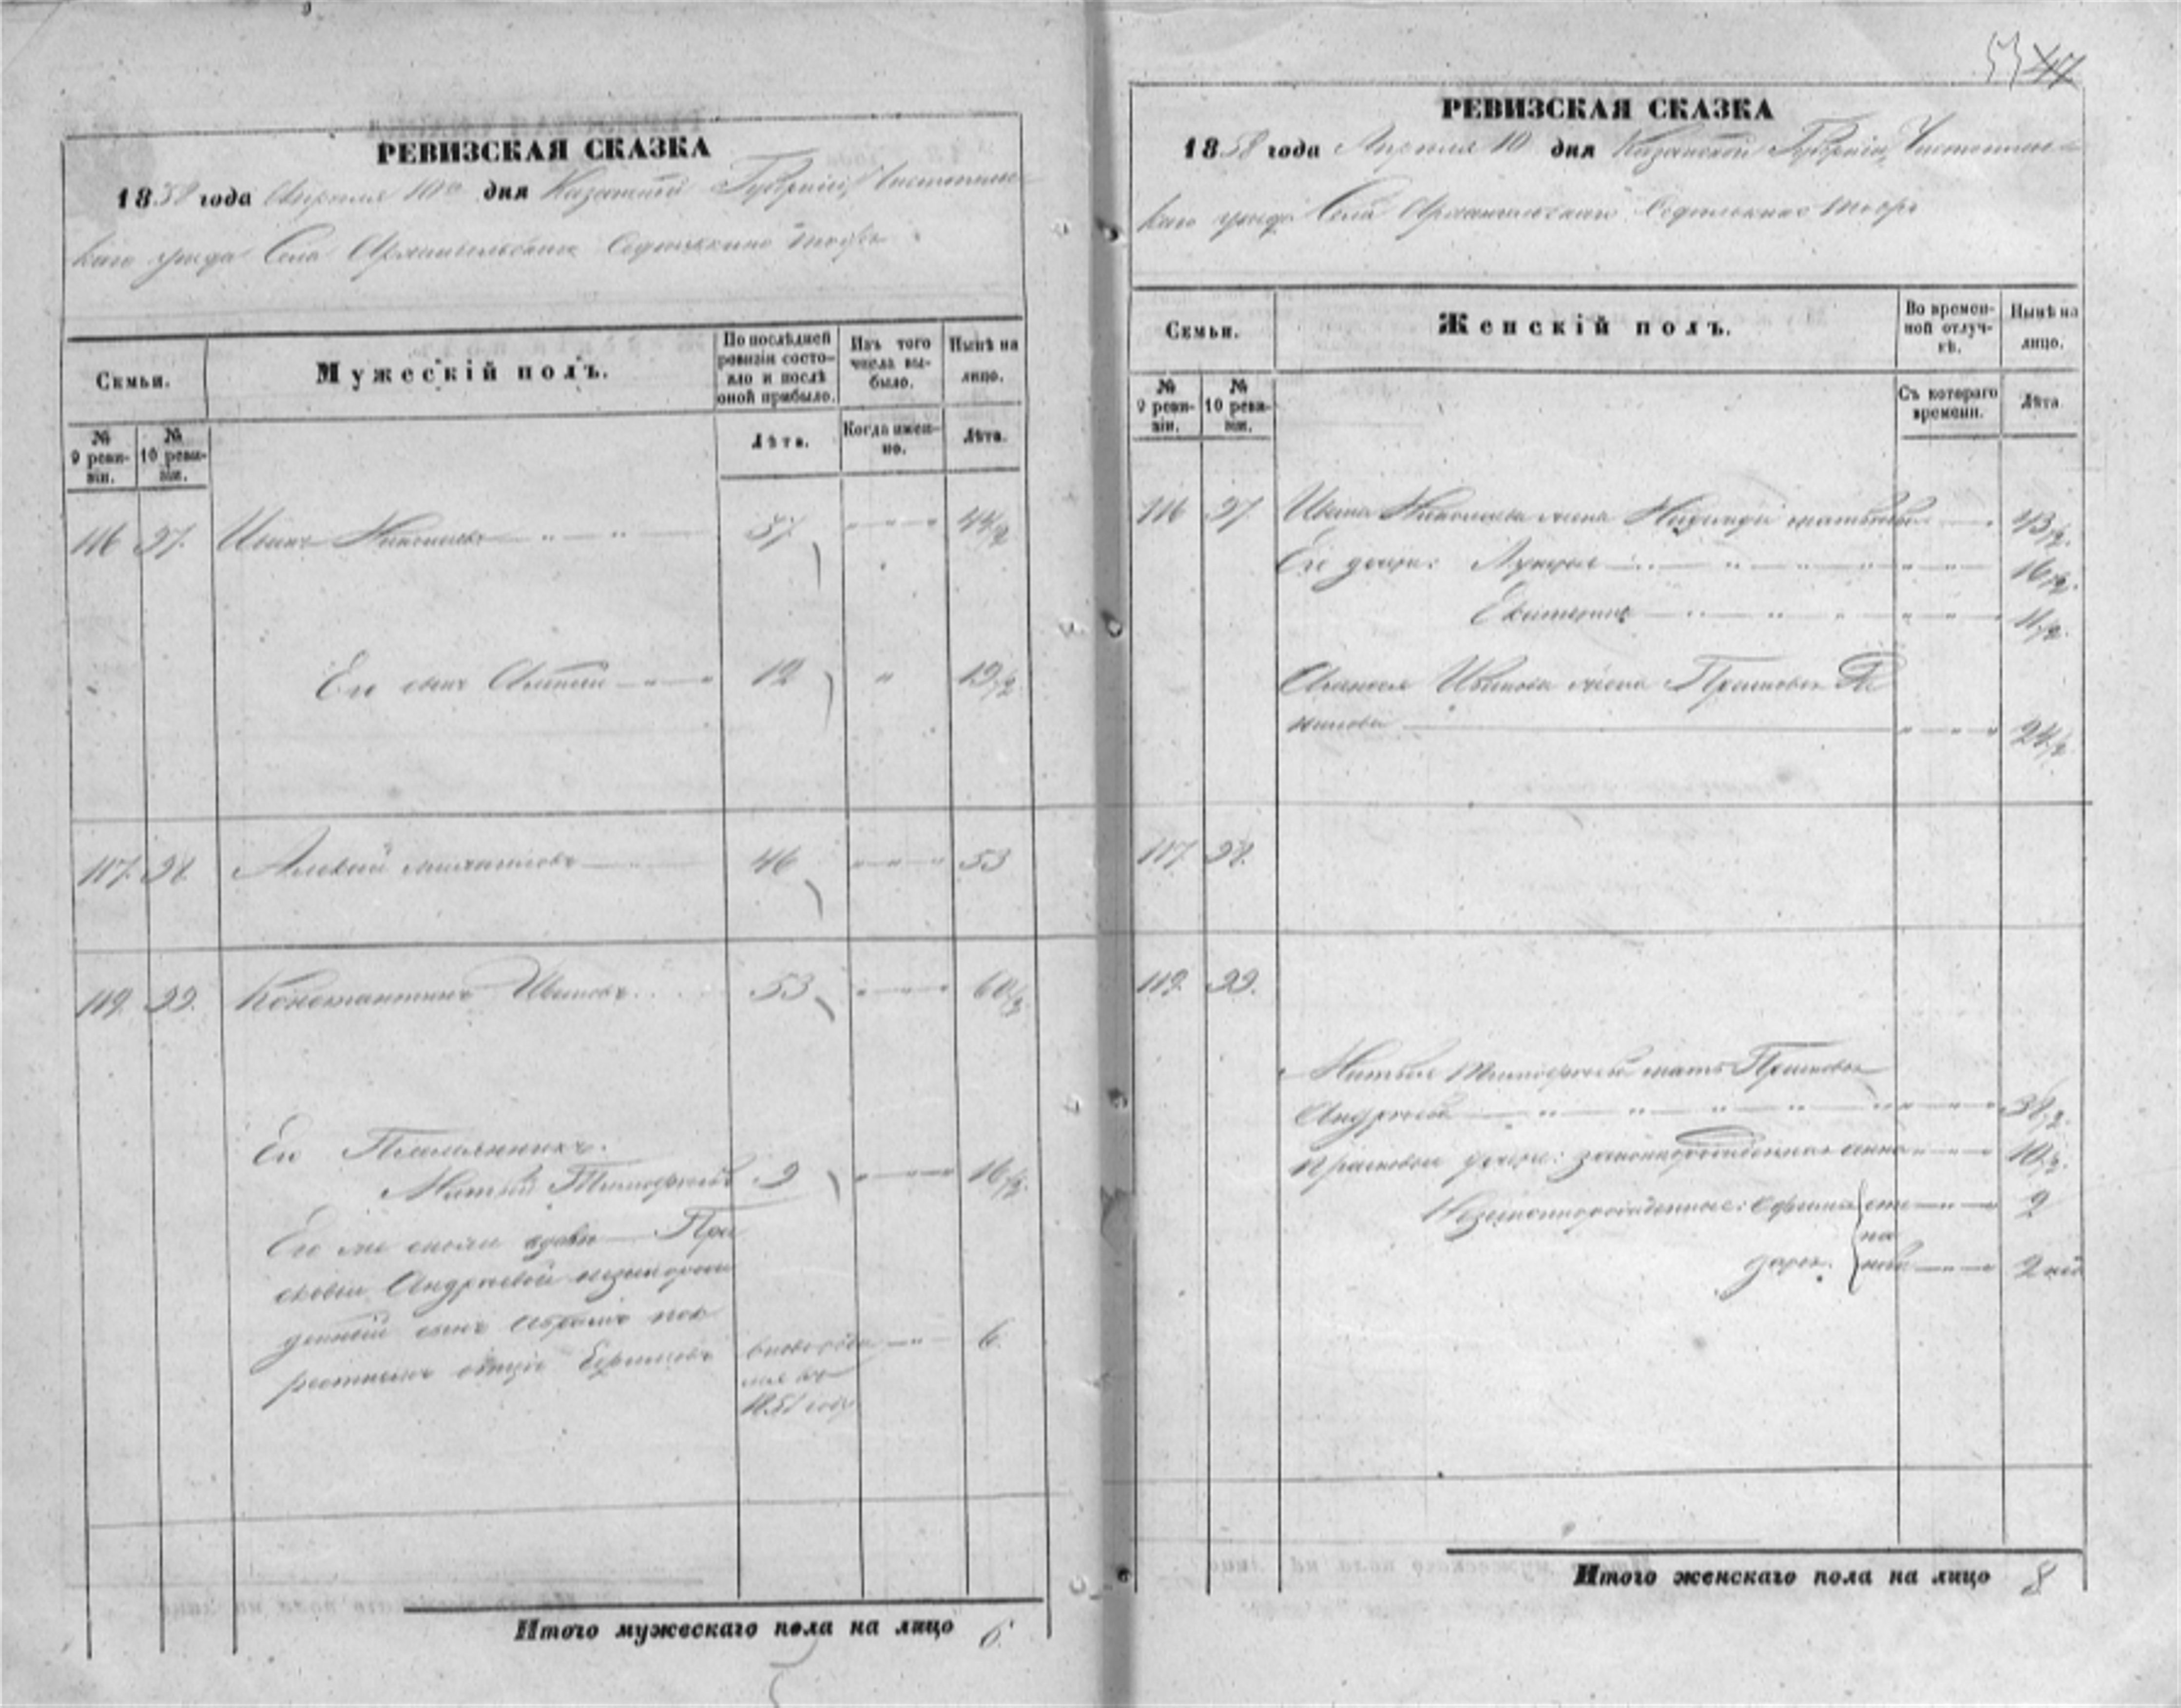 РЕВИЗСКАЯ СКАЗКА
1858 года Апреля 10го дня Казанской Губернiи, Чистопольс
каго уезда Села Архангельскаго
Семьи.
Мужескiй полъ.
По послѣдней ревизiи состояло и послѣ оной прибыло.
Изъ того числа выбыло.
Нынѣ на лицо.
№ 9 ревизiи.
№ 10 ревизiи.
Лѣта.
Когда именно.
Лѣта.
116 97. Иванъ Николаевъ 37 44 1/2
Его сынъ 12 19 1/2
117. 98. Алексей Михайловъ 46 53
119. 99. Константинъ Ивановъ 53 60 1/2
Его Племянникъ.
Матвей Тимофеевъ 9 16 1/2
Его же снохи вдовы Пра
сковьи Андреевой незаконорож
денный сынъ Абрамъ по к
рестному отцу Ефимовъ 6
1851 году
Итого мужескаго пола на лицо 6
53 47
РЕВИЗСКАЯ СКАЗКА
1858 года Апреля 10 дня Казанской Губернiи, Чистопольс
каго уезда Села Архангельскаго
Семьи.
Женскiй полъ.
Во временной отлучкѣ.
Нынѣ на лицо.
№ 9 ревизiи.
№ 10 ревизiи.
Съ котораго времени.
Лѣта
116 97. Ивана Николаева жена 43 1/2.
Его дочери: Лукерья 16 1/2.
Екатерина 11 1/2.
Ивановa жена Прасковья Да
нилова 24 1/2
117. 98.
119. 99.
Матвея Тимофеева мать Прасковья
Андреева 38 1/2.
Прасковьи дочери: законнорожденная Анна 10 1/2.
Незаконнорожденные: сте 9
па
дарья. нова 2 нед
Итого женскаго пола на лицо 8